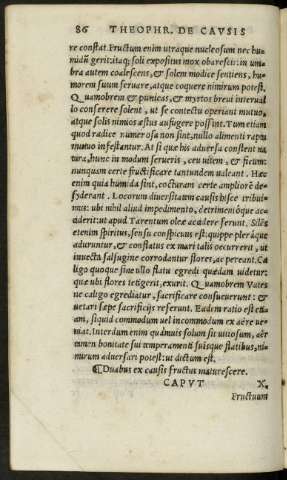 86 THEOPHR. DE CAVSIS
re constat. Fructum enim utraque nucleosum nec hu-
midũ gerit: itaq; soli expositus mox obarescit: in um-
bra autem coalescens, & solem modice sentiens, hu-
morem suum seruare, atque coquere nimirum potest.
Quamobrem & punicas, & myrtos breui interual
lo conserere solent, ut se contectu operiant mutuo,
atque solis nimios æstus aufugere possint. Tum etiam
quod radice numerosa non sint, nullo alimenti raptu
mutuo infestantur. At si quæ his aduersa constent na
tura, hunc in modum serueris, ceu uitem, & ficum:
nunquam certe fructificare tantundem ualeant. Hæc
enim quia humida sint, cocturam certe ampliorẽ de-
syderant. Locorum diuersitatum causis hisce tribui-
mus: ubi nihil aliud impedimento, detrimentóque ac-
ciderit: ut apud Tarentum oleæ accidere ferunt. Silẽs
etenim spiritus, sensu conspicuus est: quippe pleráque
aduruntur, & conflatus ex mari talis occurrerit, ut
inuecta salsugine corrodantur flores, ac pereant. Ca
ligo quoque siue ullo flatu egredi quædam uidetur:
quæ ubi flores tetigerit, exurit. Quamobrem Vates
ne caligo egrediatur, sacrificare consueuerunt: &
uetari sæpe sacrificijs referunt. Eadem ratio est eti-
am, siquid commodum uel incommodum ex aëre ue-
niat. Interdum enim quãuis solum sit uitiosum, aër
tamen bonitate sui temperamenti suisque flatibus, ni-
mirum aduersari potest: ut dictum est.
¶ Duabus ex causis fructus maturescere.
CAPVT X.
Fructuum